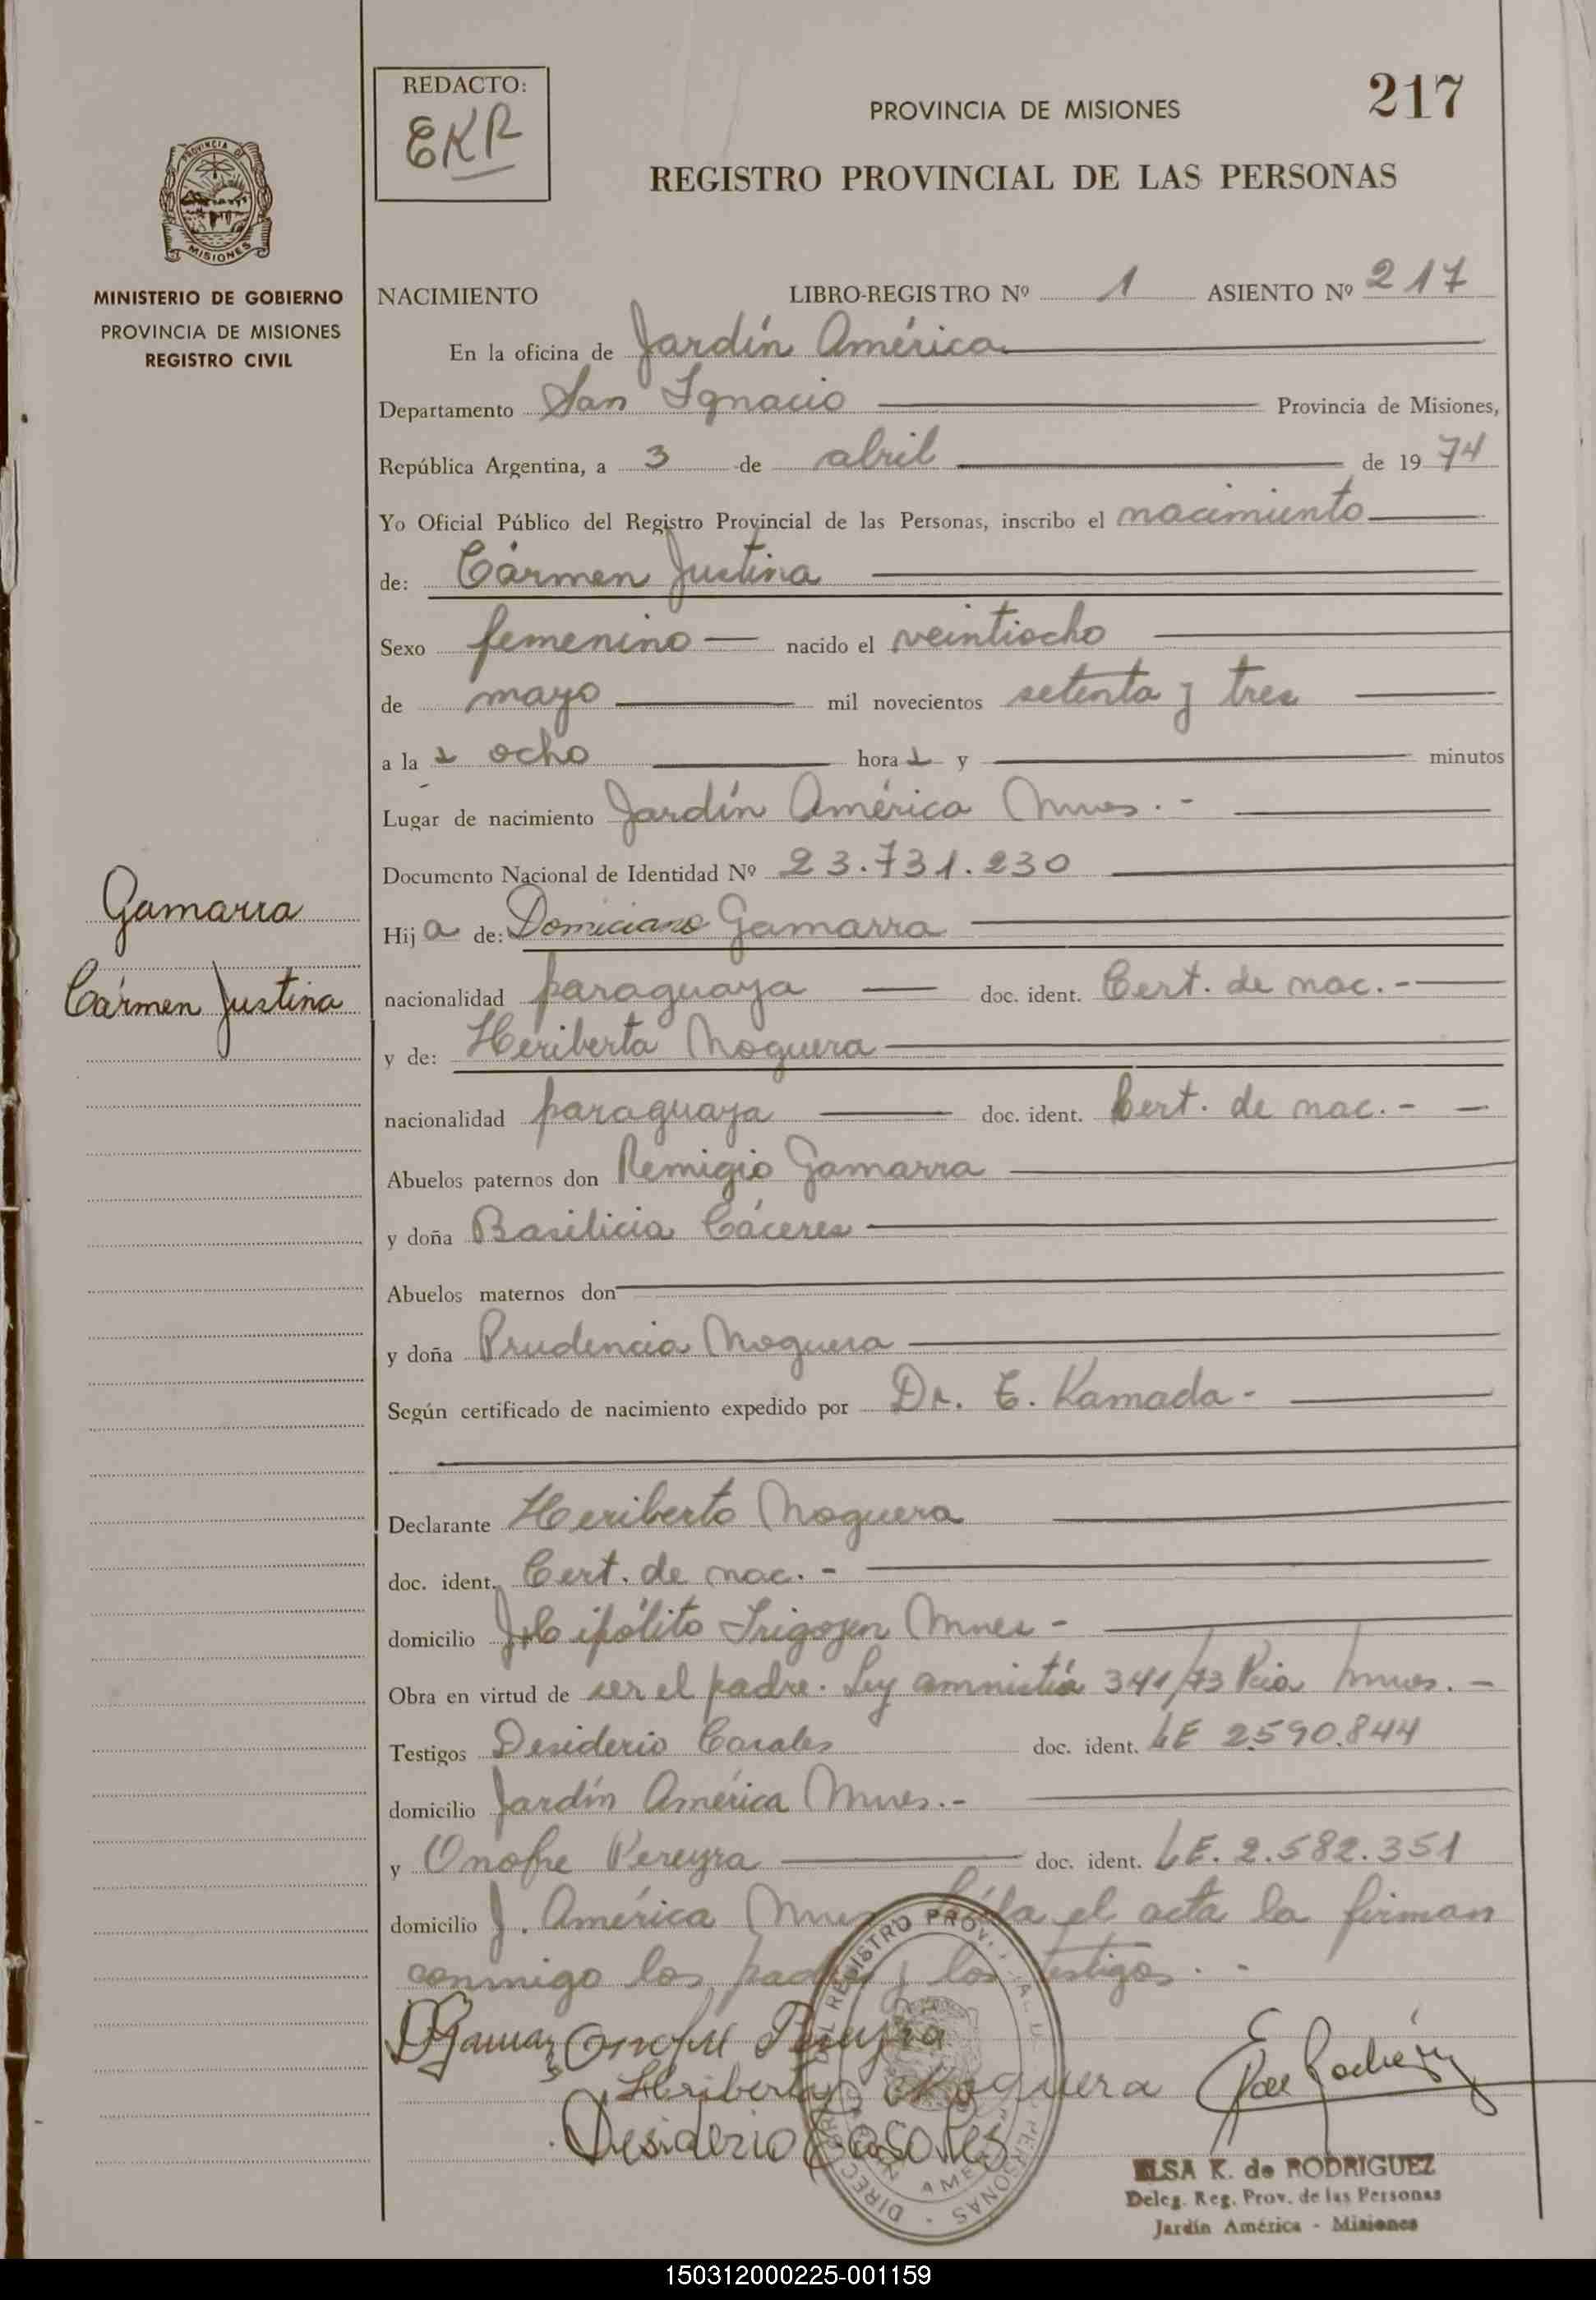 REDACTO:
EKR
PROVINCIA DE MISIONES
217
REGISTRO PROVINCIAL DE LAS PERSONAS
PROVINCIA DE
MISIONES
MINISTERIO DE GOBIERNO
PROVINCIA DE MISIONES
REGISTRO CIVIL
NACIMIENTO LIBRO-REGISTRO Nº 1 ASIENTO Nº 217
En la oficina de Jardín América
Departamento San Ignacio Provincia de Misiones,
República Argentina, a 3 de abril de 1974
Yo Oficial Público del Registro Provincial de las Personas, inscribo el nacimiento
de: Cármen Justina
Sexo femenino nacido el veintiocho
de mayo mil novecientos setenta y tres
a las ocho horas y minutos
Lugar de nacimiento Jardín América Mnes. -
Documento Nacional de Identidad Nº 23.731.230
Gamarra
Hija de: Domiciano Gamarra
Cármen Justina
nacionalidad paraguaya doc. ident. Cert. de nac. -
y de: Heriberta Noguera
nacionalidad paraguaya doc. ident. Cert. de nac. - -
Abuelos paternos don Remigio Gamarra
y doña Basilicia Cáceres
Abuelos maternos don
y doña Prudencia Noguera
Según certificado de nacimiento expedido por Dr. E. Kamada -
Declarante Heriberto Noguera
doc. ident. Cert. de nac. -
domicilio Hipólito Irigoyen Mnes -
Obra en virtud de ser el padre. Ley amnistía 341/73 Pcia Mnes. -
Testigos Desiderio Casales doc. ident. LE 2590.844
domicilio Jardín América Mnes. -
y Onofre Pereyra doc. ident. LE. 2.582.351
domicilio J. América Mnes el acta la firman
conmigo los padres y los testigos. -
DGamarra Onofre Pereyra
Heriberta Noguera
Desiderio Casales
ELSA K. de RODRIGUEZ
Deleg. Reg. Prov. de las Personas
Jardín América - Misiones
150312000225-001159